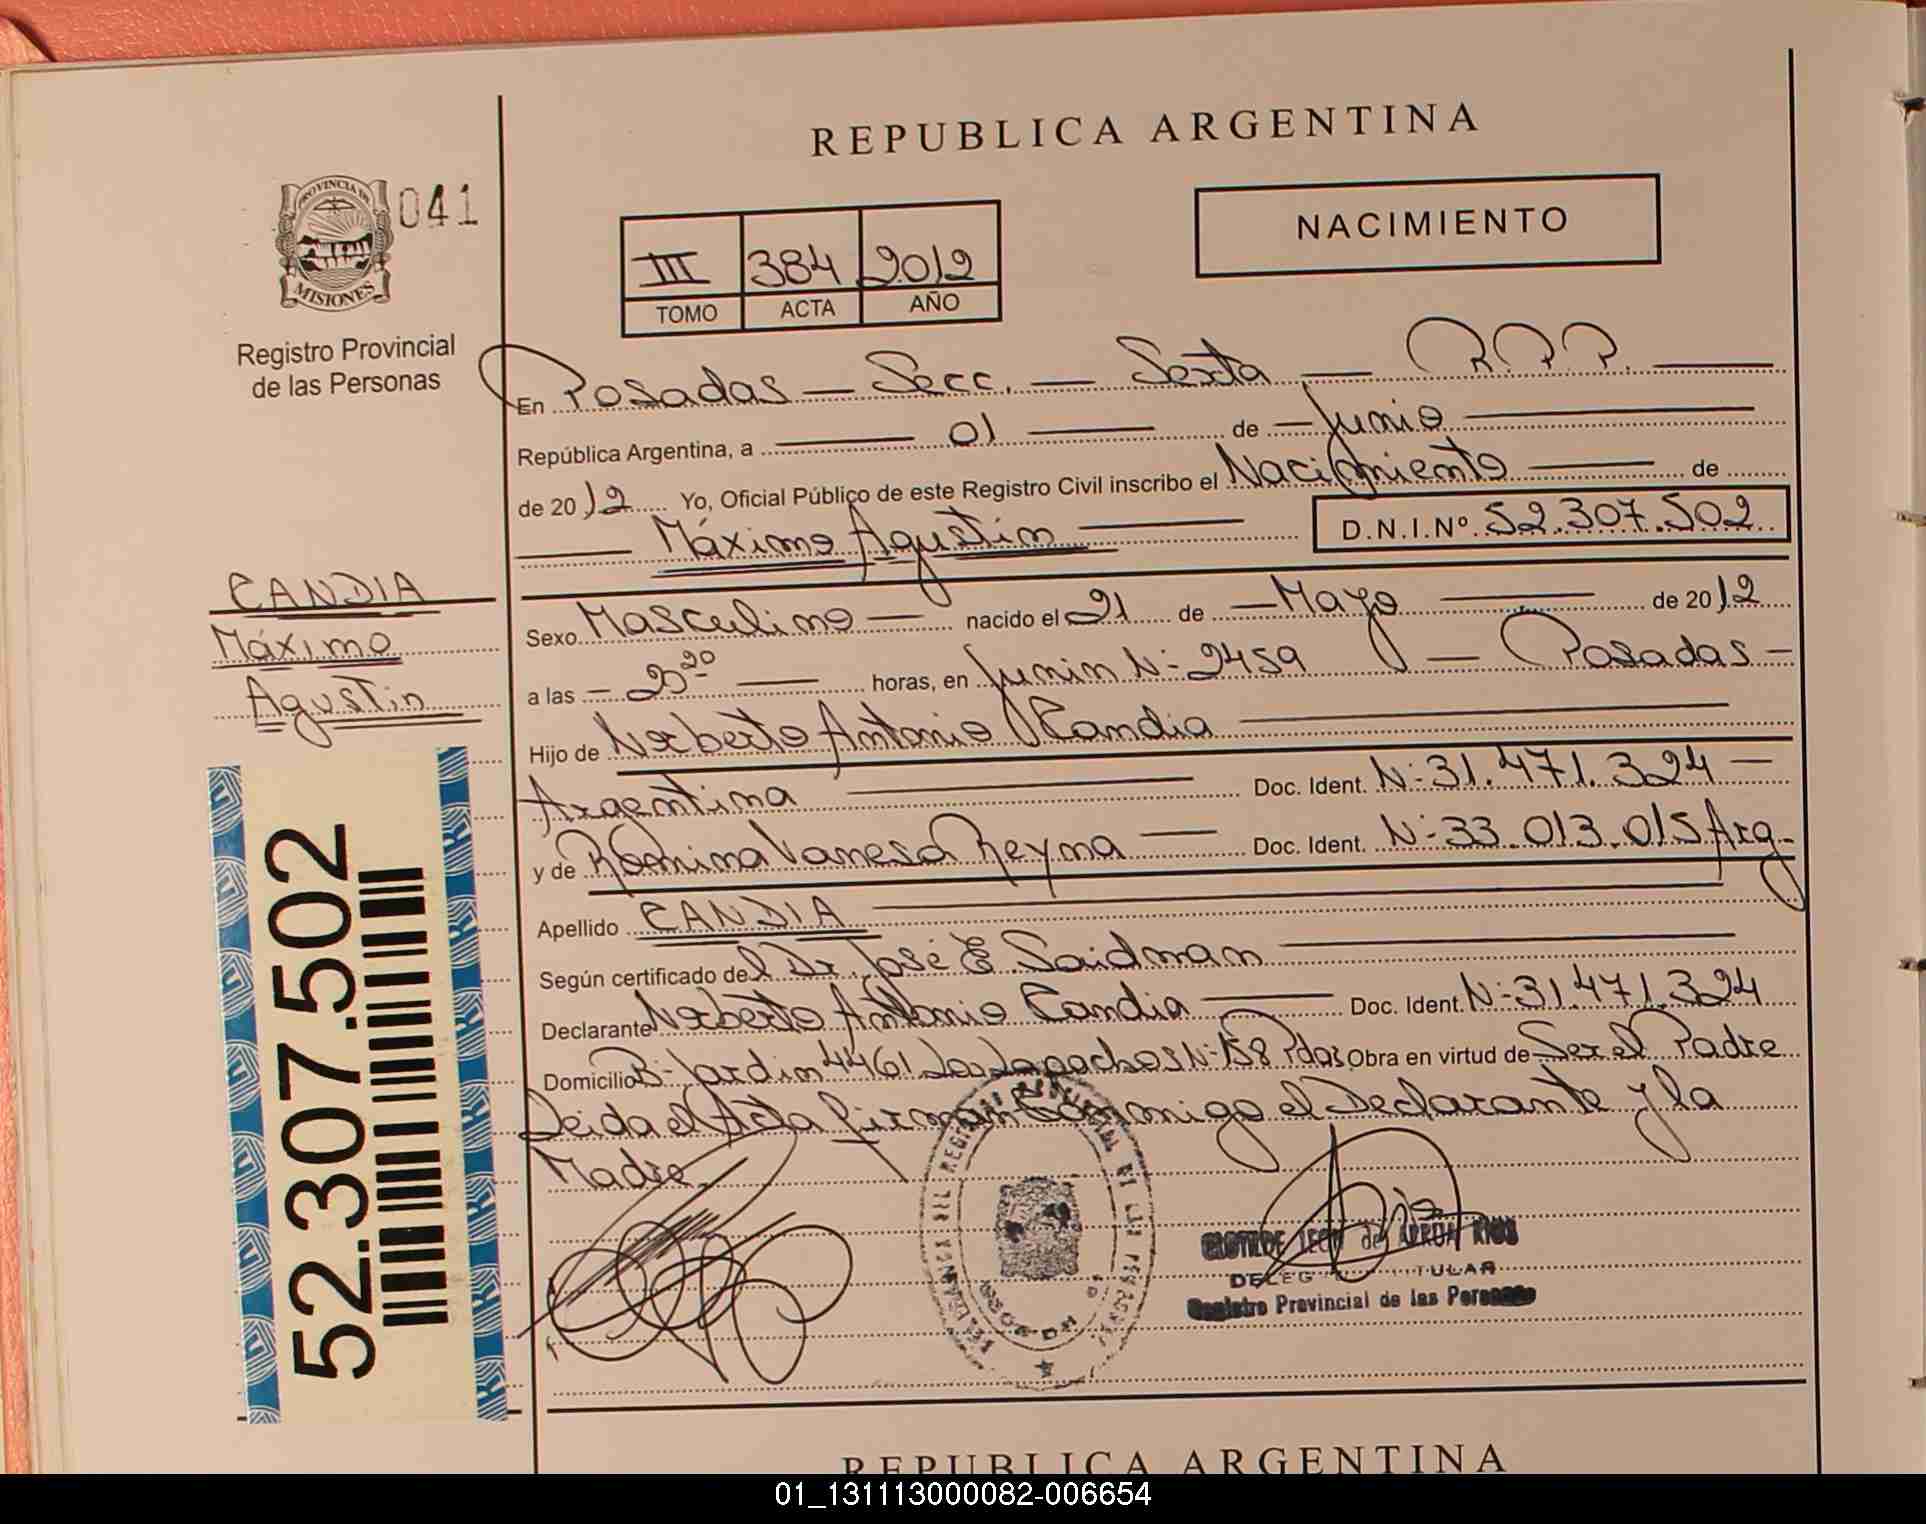 REPUBLICA ARGENTINA
PROVINCIA DE
MISIONES
041
Registro Provincial
de las Personas
III 384 2012
TOMO ACTA AÑO
NACIMIENTO
En Posadas — Secc. — Sexta — R.P.P. —
República Argentina, a — 01 — de — Junio —
de 2012 Yo, Oficial Público de este Registro Civil inscribo el Nacimiento — de
— Máximo Agustín — D.N.I.Nº 52.307.502
CANDIA
Máximo
Agustín
Sexo Masculino — nacido el 21 de — Mayo — de 2012
a las — 23 20 — horas, en Junin Nº 2459 — Posadas —
Hijo de Norberto Antonio Candia —
Argentina — Doc. Ident. Nº 31.471.324 —
y de Romina Vanesa Reyna — Doc. Ident. Nº 33.013.015 Arg.
Apellido CANDIA —
Según certificado del Dr. José E. Saidman —
Declarante Norberto Antonio Candia — Doc. Ident. Nº 31.471.324
Domicilio Bº Jardin 4461 Los Lapachos Nº 158 Pdas Obra en virtud de Ser el Padre
Leida el Acta firman Conmigo el Declarante y la
Madre.
52.307.502
DELEG TITULAR
Registro Provincial de las Personas
REPUBLICA ARGENTINA
01_131113000082-006654